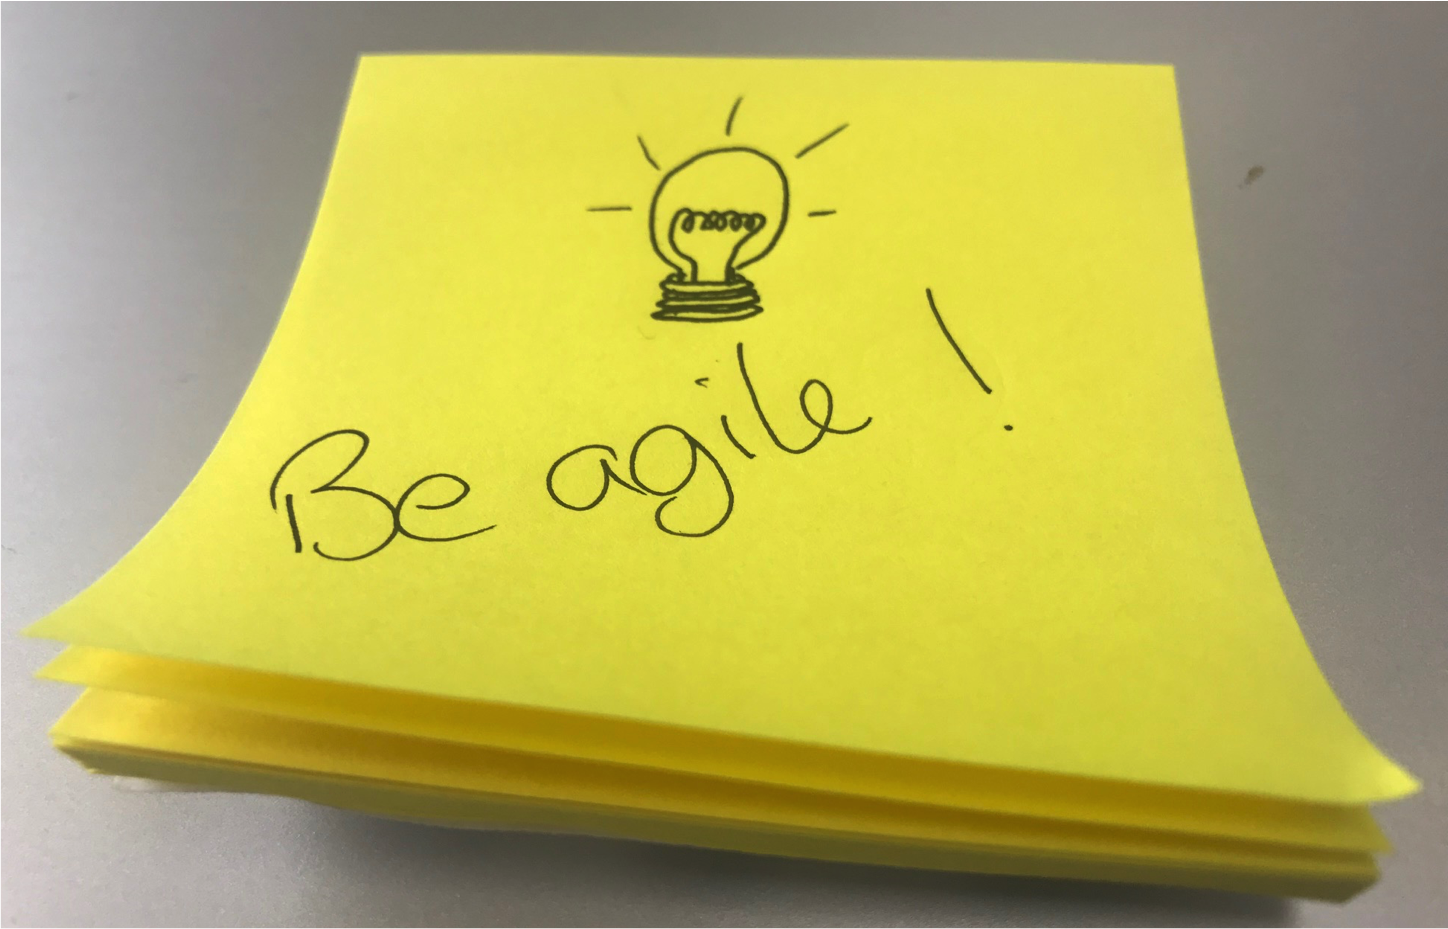 Be agile !